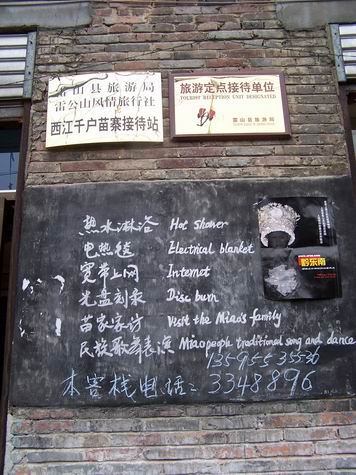 雷山县旅游局
雷公山风情旅行社
西江千户苗寨接待站
旅游定点接待单位
TOURIST RECEPTION UNIT DESIGNATED
雷山县旅游局
热水淋浴 Hot Shower
电热毯 Electrical blanket
宽带上网 Internet
光盘刻录 Disc burn
苗家家访 Visit the Miao's family
民族歌舞表演 Miaopeople traditional song and dance
黔东南
本客栈电话: 3348896